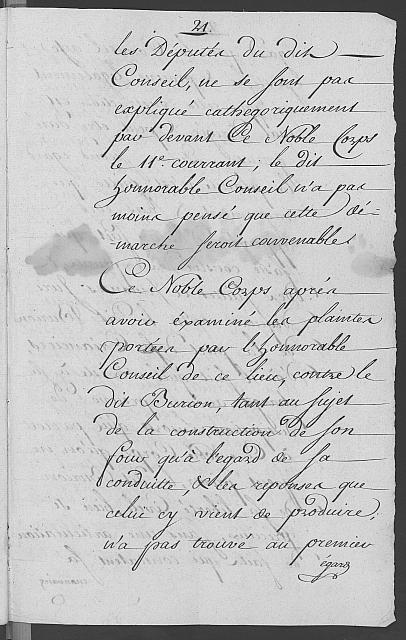 21.
les Députés du dit
Conseil, ne se sont pas
expliqué cathegoriquement
par devant Ce Noble Corps
le 11e. courrant; le dit
Honnorable Conseil n'a pas
moins pensé que cette dé-
marche seroit convenable.
Ce Noble Corps après
avoir éxaminé les plaintes
portées par l'Honnorable
Conseil de ce lieu, contre le
dit Burion, tant au sujet
de la construction de son
four qu'à l'egard de sa
conduitte, & les reponses que
celui cy vient de produire,
n'a pas trouvé au premier
égard